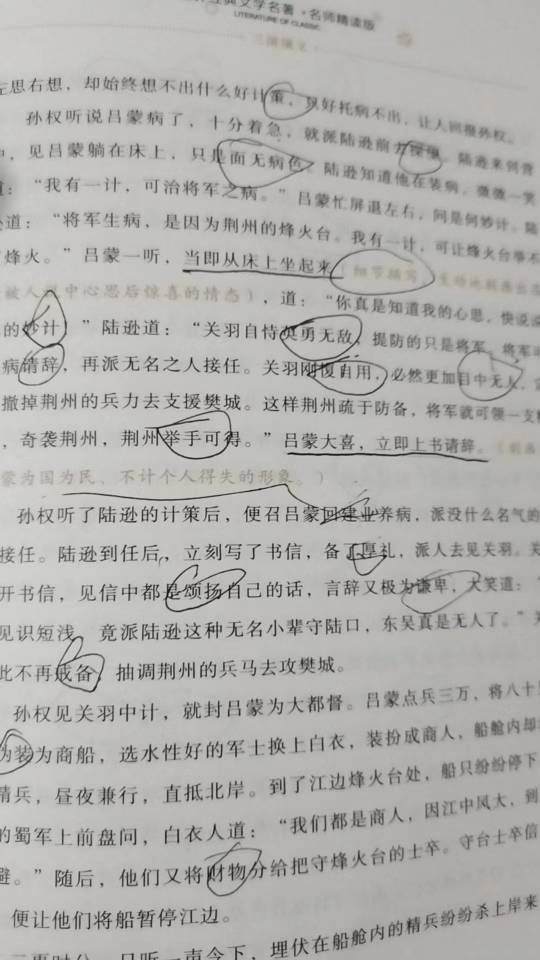 经典文学名著·名师精读版
LITERATURE OF CLASSIC
三国演义
左思右想,却始终想不出什么好计策,只好托病不出,让人回报孙权。
孙权听说吕蒙病了,十分着急,就派陆逊前去探望。陆逊来到营
中,见吕蒙躺在床上,只是面无病色。陆逊知道他在装病,微微一笑
道:“我有一计,可治将军之病。”吕蒙忙屏退左右,问是何妙计。陆
逊道:“将军生病,是因为荆州的烽火台。我有一计,可让烽火台举不
烽火。”吕蒙一听,当即从床上坐起来(细节描写,生动地
被人说中心思后惊喜的情态),道:“你真是知道我的心思,快说说
的妙计!”陆逊道:“关羽自恃英勇无敌,提防的只是将军。将军
病请辞,再派无名之人接任。关羽刚愎自用,必然更加目中无人,
撤掉荆州的兵力去支援樊城。这样荆州疏于防备,将军就可领一支
,奇袭荆州,荆州举手可得。”吕蒙大喜,立即上书请辞。
蒙为国为民、不计个人得失的形象。)
孙权听了陆逊的计策后,便召吕蒙回建业养病,派没什么名气的
接任。陆逊到任后,立刻写了书信,备了厚礼,派人去见关羽。关
开书信,见信中都是颂扬自己的话,言辞又极为谦卑,大笑道:“
见识短浅,竟派陆逊这种无名小辈守陆口,东吴真是无人了。”
此不再戒备,抽调荆州的兵马去攻樊城。
孙权见关羽中计,就封吕蒙为大都督。吕蒙点兵三万,将八十
伪装为商船,选水性好的军士换上白衣,装扮成商人,船舱内却
精兵,昼夜兼行,直抵北岸。到了江边烽火台处,船只纷纷停下
的蜀军上前盘问,白衣人道:“我们都是商人,因江中风大,到
避。”随后,他们又将财物分给把守烽火台的士卒。守台士卒信
便让他们将船暂停江边。
二更时分,只听一声令下,埋伏在船舱内的精兵纷纷杀上岸来